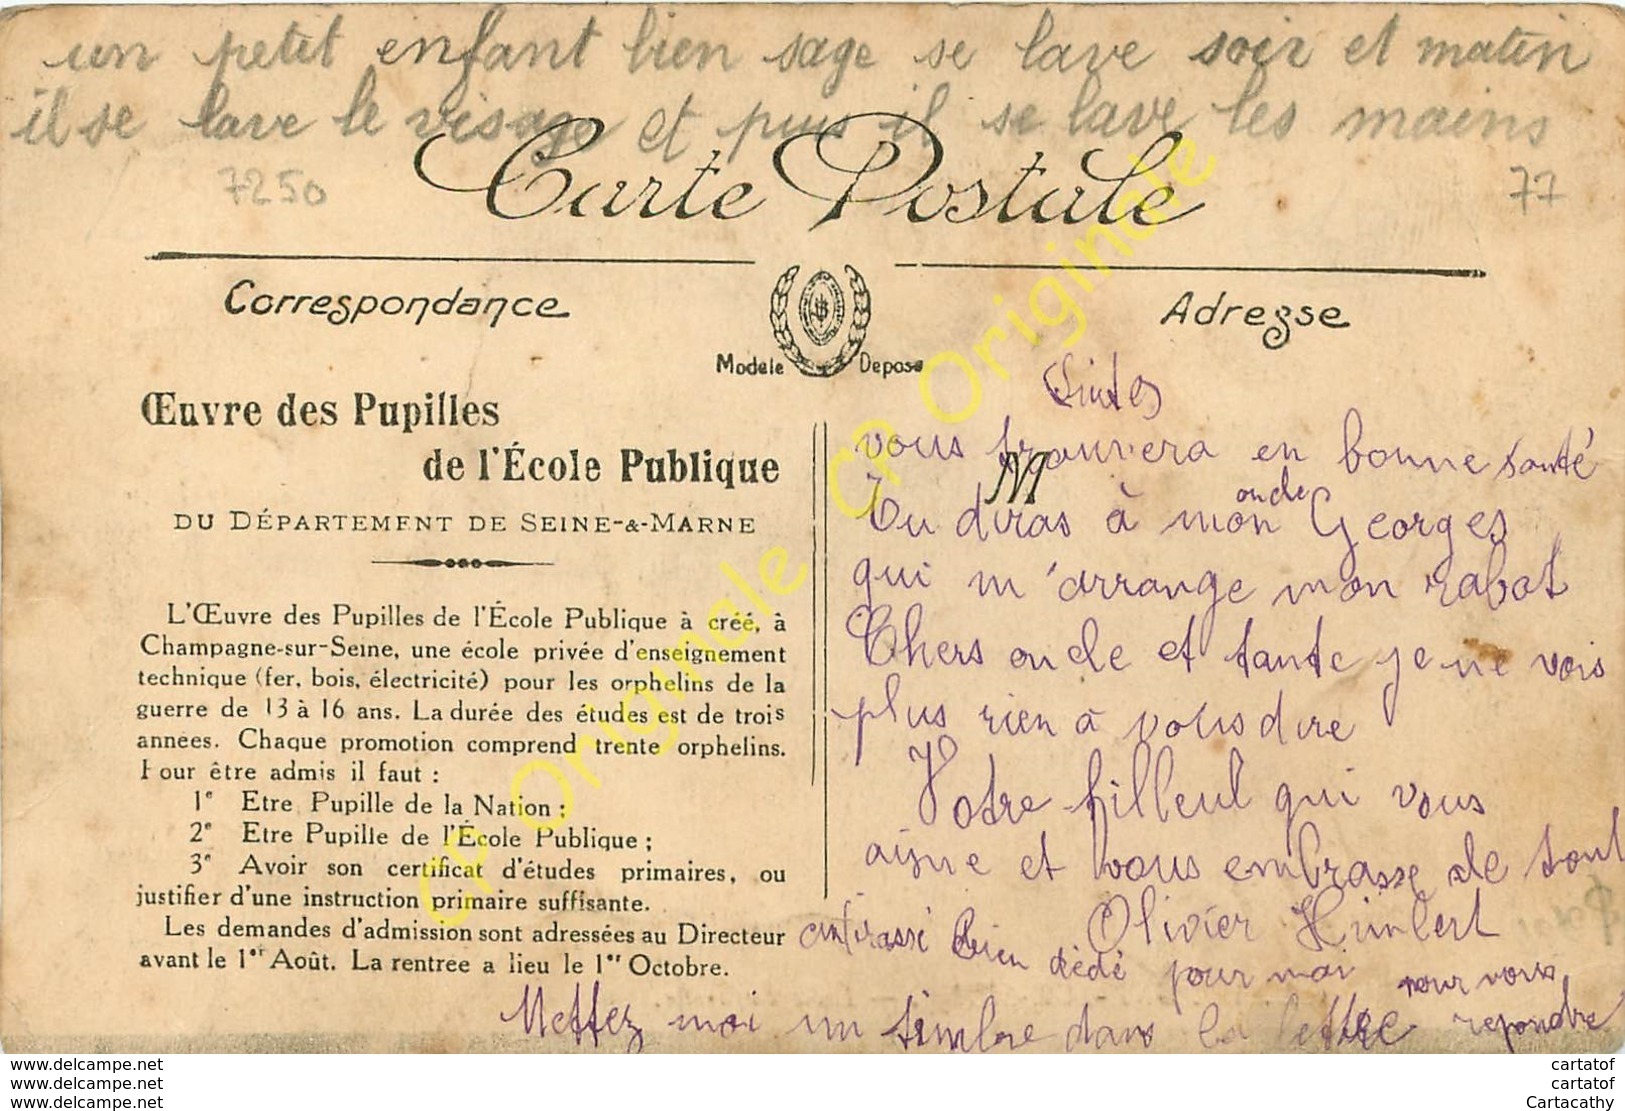 un petit enfant bien sage se lave soir et matin
il se lave le visage et puis il se lave les mains
7250
77
Carte Postale
Correspondance
Adresse
Modèle Déposé
Œuvre des Pupilles
de l'École Publique
DU DÉPARTEMENT DE SEINE-&-MARNE
L'Œuvre des Pupilles de l'École Publique à créé, à
Champagne-sur-Seine, une école privée d'enseignement
technique (fer, bois, électricité) pour les orphelins de la
guerre de 13 à 16 ans. La durée des études est de trois
années. Chaque promotion comprend trente orphelins.
Pour être admis il faut :
1e Etre Pupille de la Nation ;
2e Etre Pupille de l'École Publique ;
3e Avoir son certificat d'études primaires, ou
justifier d'une instruction primaire suffisante.
Les demandes d'admission sont adressées au Directeur
avant le 1er Août. La rentrée a lieu le 1er Octobre.
vous trouvera en bonne santé
Tu diras à mon oncle Georges
qui m'arrange mon rabot
Chers oncle et tante je ne vois
plus rien à vous dire
Votre filleul qui vous
aisne et vous embrasse de tout
Olivier Humbert
embrassé bien dédé pour moi
Mettez moi un timbre dans la lettre pour vous repondre
CP Originale CP Originale CP Originale
www.delcampe.net
www.delcampe.net
www.delcampe.net
cartatof
cartatof
Cartacathy